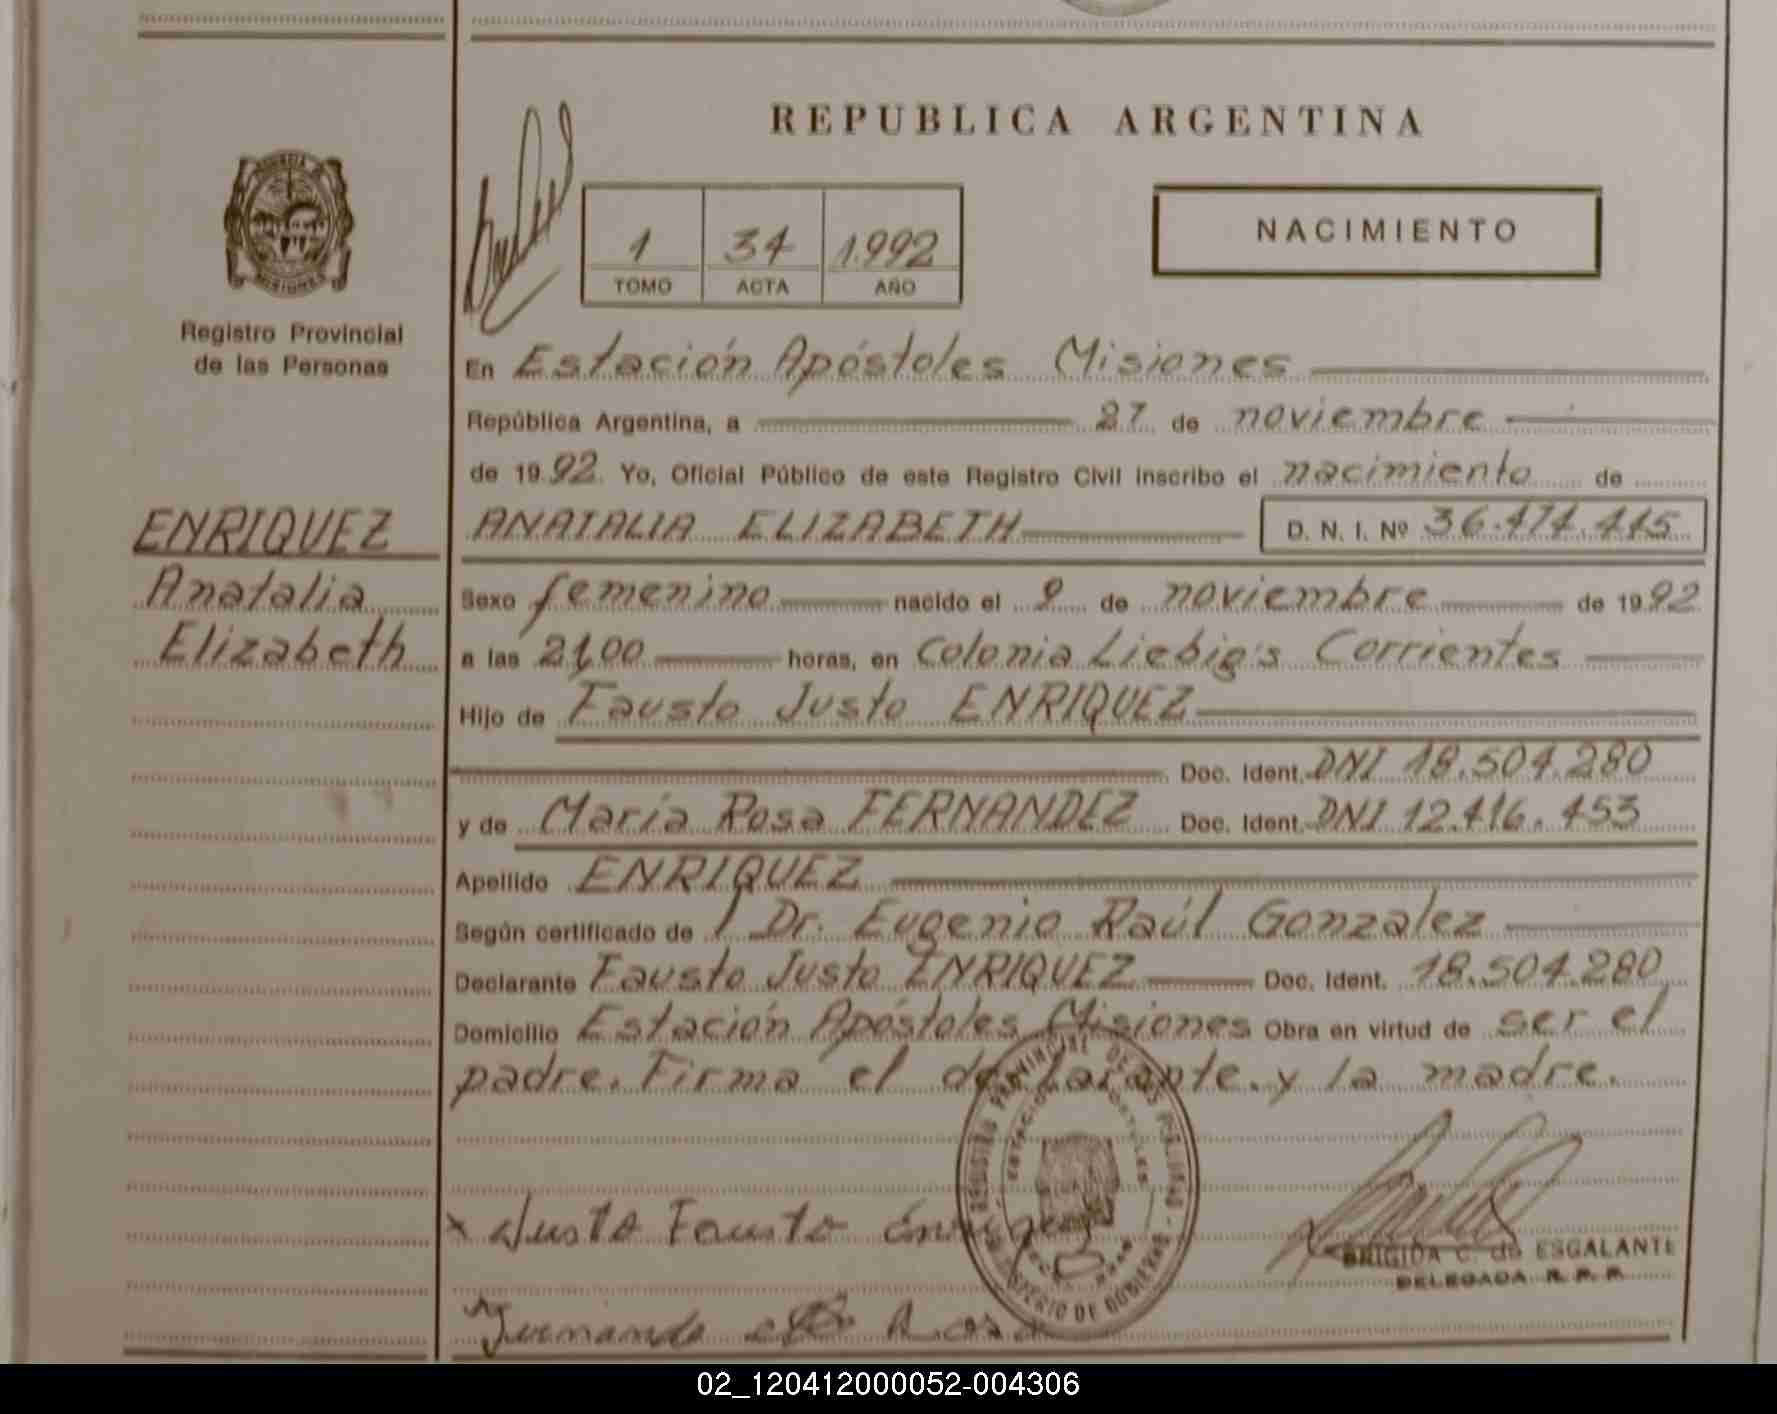 REPUBLICA ARGENTINA
NACIMIENTO
1 34 1.992
TOMO ACTA AÑO
MISIONES
Registro Provincial
de las Personas
En Estación Apóstoles Misiones
República Argentina, a 27 de noviembre
de 19 92. Yo, Oficial Público de este Registro Civil inscribo el nacimiento de
ENRIQUEZ
Anatalia
Elizabeth
ANATALIA ELIZABETH D. N. I. Nº 36.474.445
Sexo femenino nacido el 9 de noviembre de 19 92
a las 21,00 horas, en Colonia Liebig's Corrientes
Hijo de Fausto Justo ENRIQUEZ
Doc. Ident. DNI 18.504.280
y de María Rosa FERNANDEZ Doc. Ident. DNI 12.416.453
Apellido ENRIQUEZ
Según certificado de Dr. Eugenio Raúl Gonzalez
Declarante Fausto Justo ENRIQUEZ Doc. Ident. 18.504.280
Domicilio Estación Apóstoles Misiones Obra en virtud de ser el
padre. Firma el declarante. y la madre.
REGISTRO PROVINCIAL DE LAS PERSONAS
MINISTERIO DE GOBIERNO
x Justo Fausto Enriquez
BRIGIDA C. de ESCALANTE
DELEGADA R. P. P.
Rosa
02_120412000052-004306